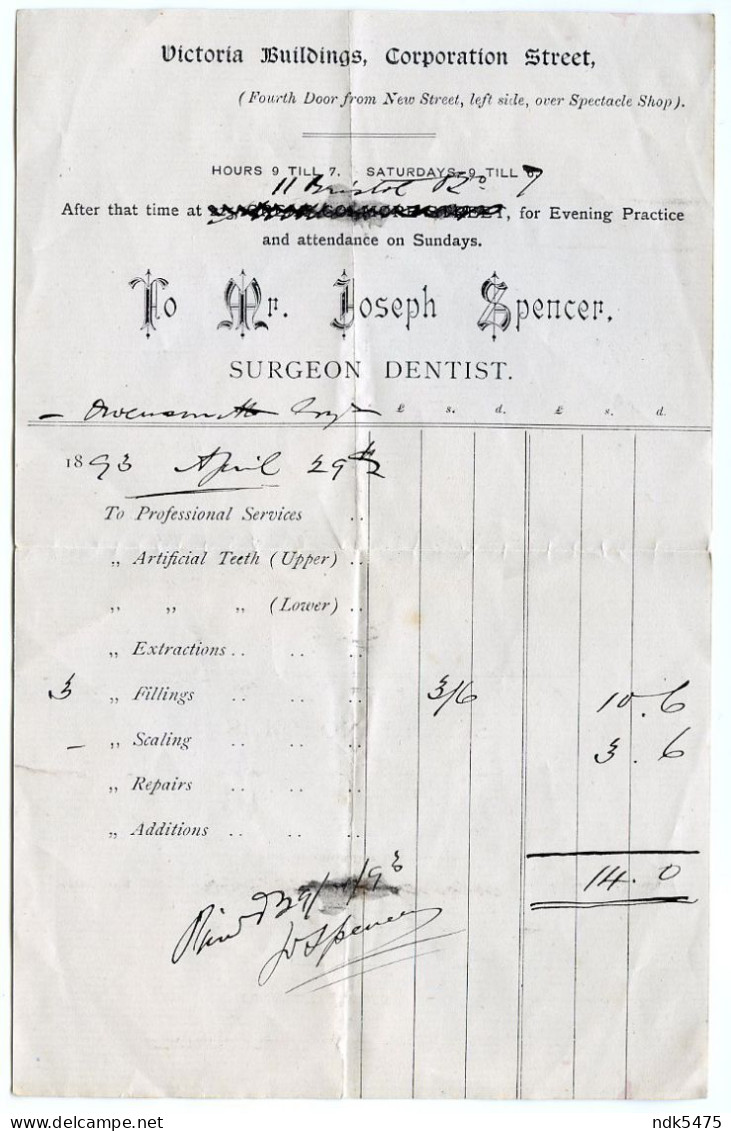 Victoria Buildings, Corporation Street,
(Fourth Door from New Street, left side, over Spectacle Shop).
HOURS 9 TILL 7. SATURDAYS 9 TILL 7
11 Bristol Rd
After that time at STREET, for Evening Practice
and attendance on Sundays.
To Mr. Joseph Spencer,
SURGEON DENTIST.
£ s. d. £ s. d.
1893 April 29th
To Professional Services ..
„ Artificial Teeth (Upper) ..
„ „ „ (Lower) ..
„ Extractions .. .. ..
3 „ Fillings .. .. .. 3/6 10.6
– „ Scaling .. .. .. 3.6
„ Repairs .. .. ..
„ Additions .. .. ..
14.0
29/ /93
J Spencer
ndk5475